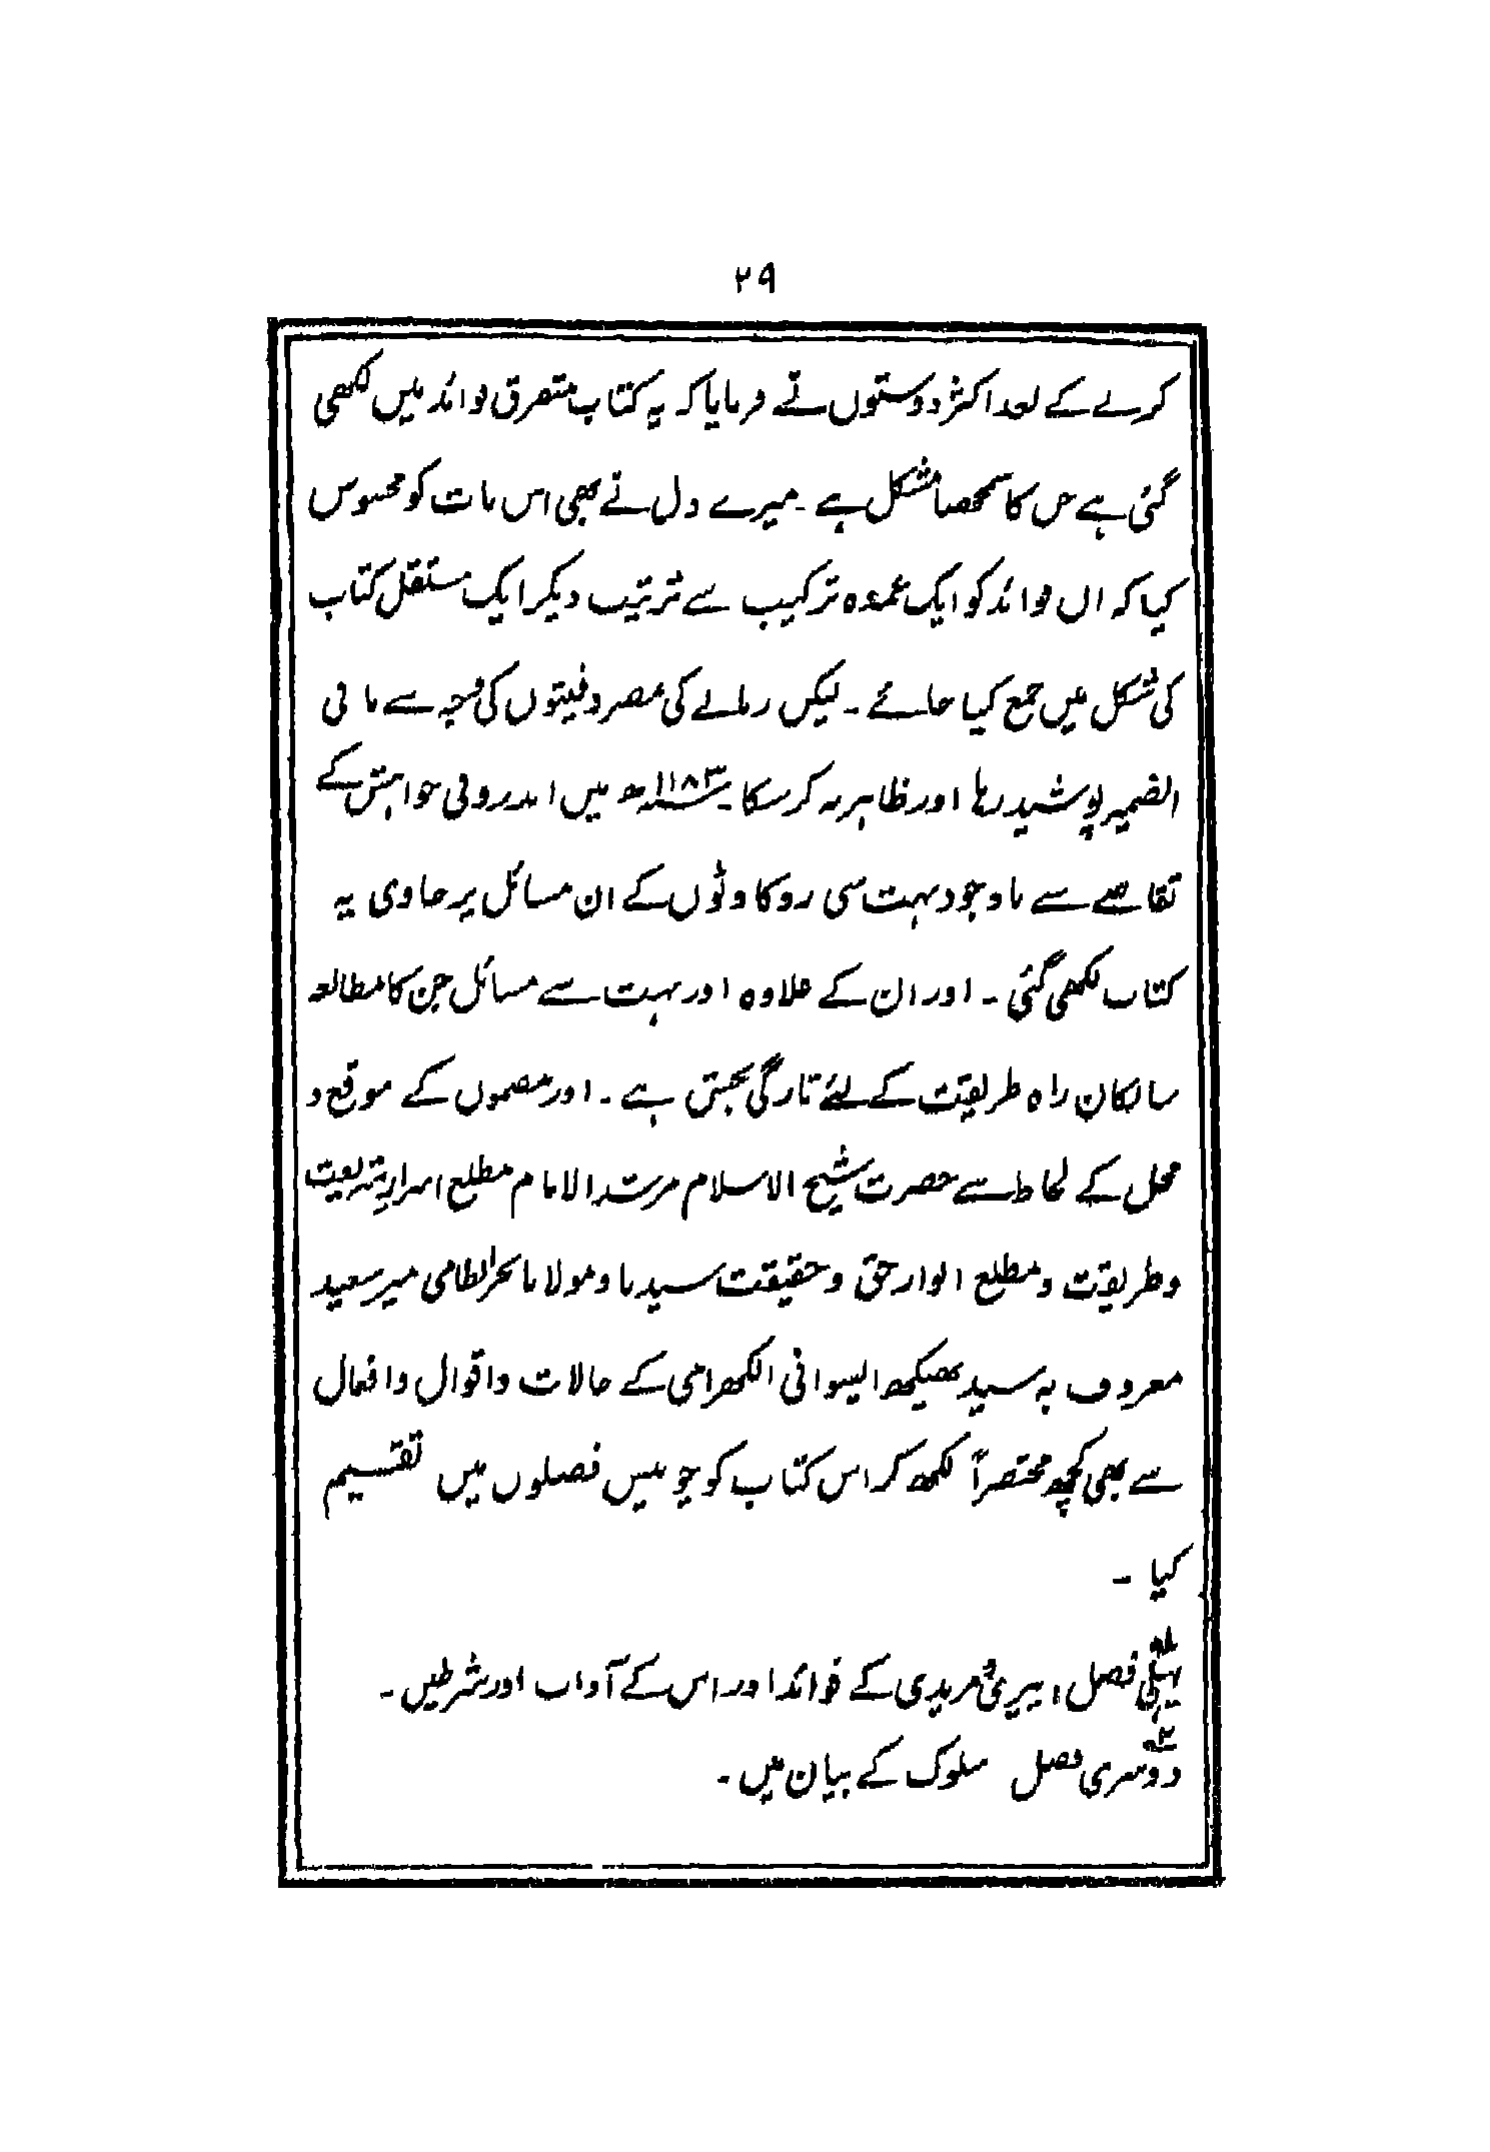 ۲۹
کرنے کے بعد اکثر دوستوں نے فرمایا کہ یہ کتاب متفرق فوائد میں لکھی
گئی ہے جس کا سمجھنا مشکل ہے ۔ میرے دل نے بھی اس بات کو محسوس
کیا کہ ان فوائد کو ایک عمدہ ترکیب سے ترتیب دیکر ایک مستقل کتاب
کی شکل میں جمع کیا جائے ۔ لیکن زمانے کی مصروفیتوں کی وجہ سے مافی
الضمیر پوشیدہ رہا اور ظاہر نہ کر سکا ۔ ۱۱۸۳ھ میں اندرونی خواہش کے
تقاضے سے باوجود بہت سی روکاوٹوں کے ان مسائل پر حاوی یہ
کتاب لکھی گئی ۔ اور ان کے علاوہ اور بہت سے مسائل جن کا مطالعہ
سالکان راہ طریقت کے لئے تازگی بخش ہے ۔ اور مضمون کے موقع و
محل کے لحاظ سے حضرت شیخ الاسلام مرشد الامام مطلع اسرارِ شریعت
و طریقت و مطلع انوار حق و حقیقت سیدنا و مولانا میر سعید
معروف بہ سید بھیکھ کے حالات و اقوال و افعال
سے بھی کچھ مختصراً لکھ کر اس کتاب کو چوبیس فصلوں میں تقسیم
کیا ۔
پہلی فصل : پیری مریدی کے فوائد اور اس کے آداب اور شرطیں ۔
دوسری فصل سلوک کے بیان میں ۔